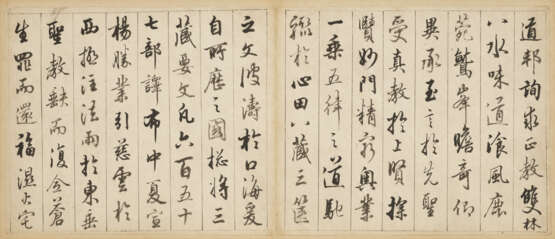 道邦詢求正教雙林
八水味道湌風鹿
菀鷲峯瞻奇仰
異承至言於先聖
受真教於上賢探
賾妙門精窮奧業
一乘五律之道馳
驟於心田八藏三篋
之文波濤於口海爰
自所歷之國捴將三
藏要文凡六百五十
七部譯布中夏宣
楊勝業引慈雲於
西極注法雨於東垂
聖教缺而復全蒼
生罪而還福濕火宅